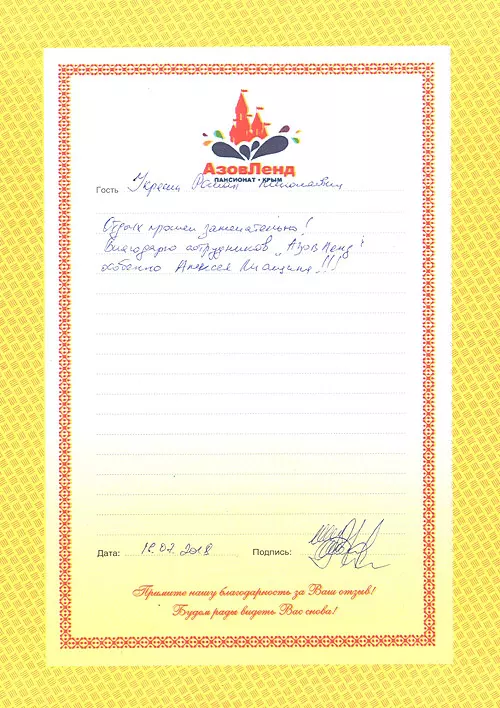 АзовЛенд
ПАНСИОНАТ • КРЫМ
Гость Николаевич
Отдых прошел замечательно!
Благодарю сотрудников "АзовЛенд"
особенно Алексея !!!
Дата: 18.07.2018 Подпись:
Примите нашу благодарность за Ваш отзыв!
Будем рады видеть Вас снова!